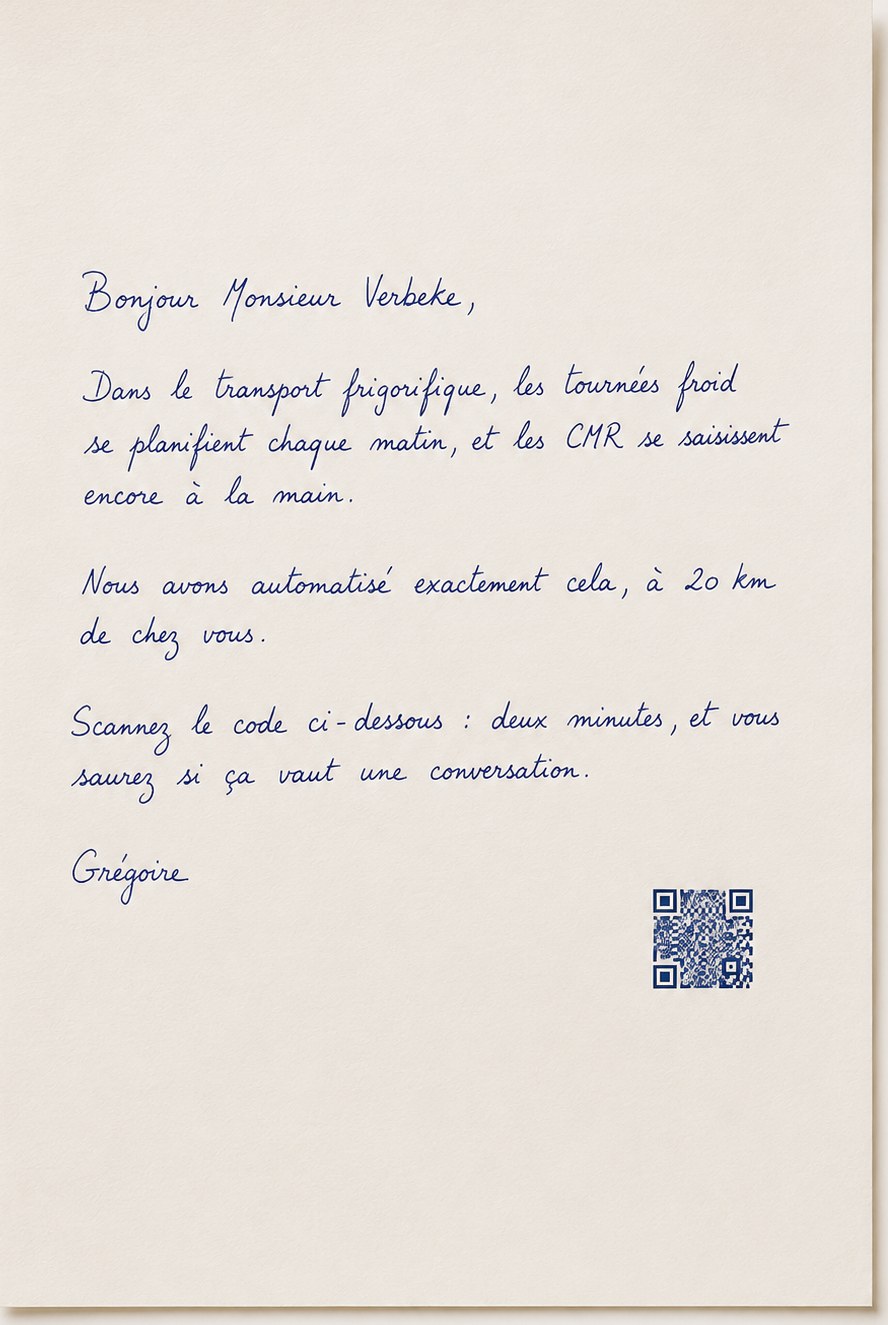 Bonjour Monsieur Verbeke,
Dans le transport frigorifique, les tournées froid
se planifient chaque matin, et les CMR se saisissent
encore à la main.
Nous avons automatisé exactement cela, à 20 km
de chez vous.
Scannez le code ci-dessous : deux minutes, et vous
saurez si ça vaut une conversation.
Grégoire